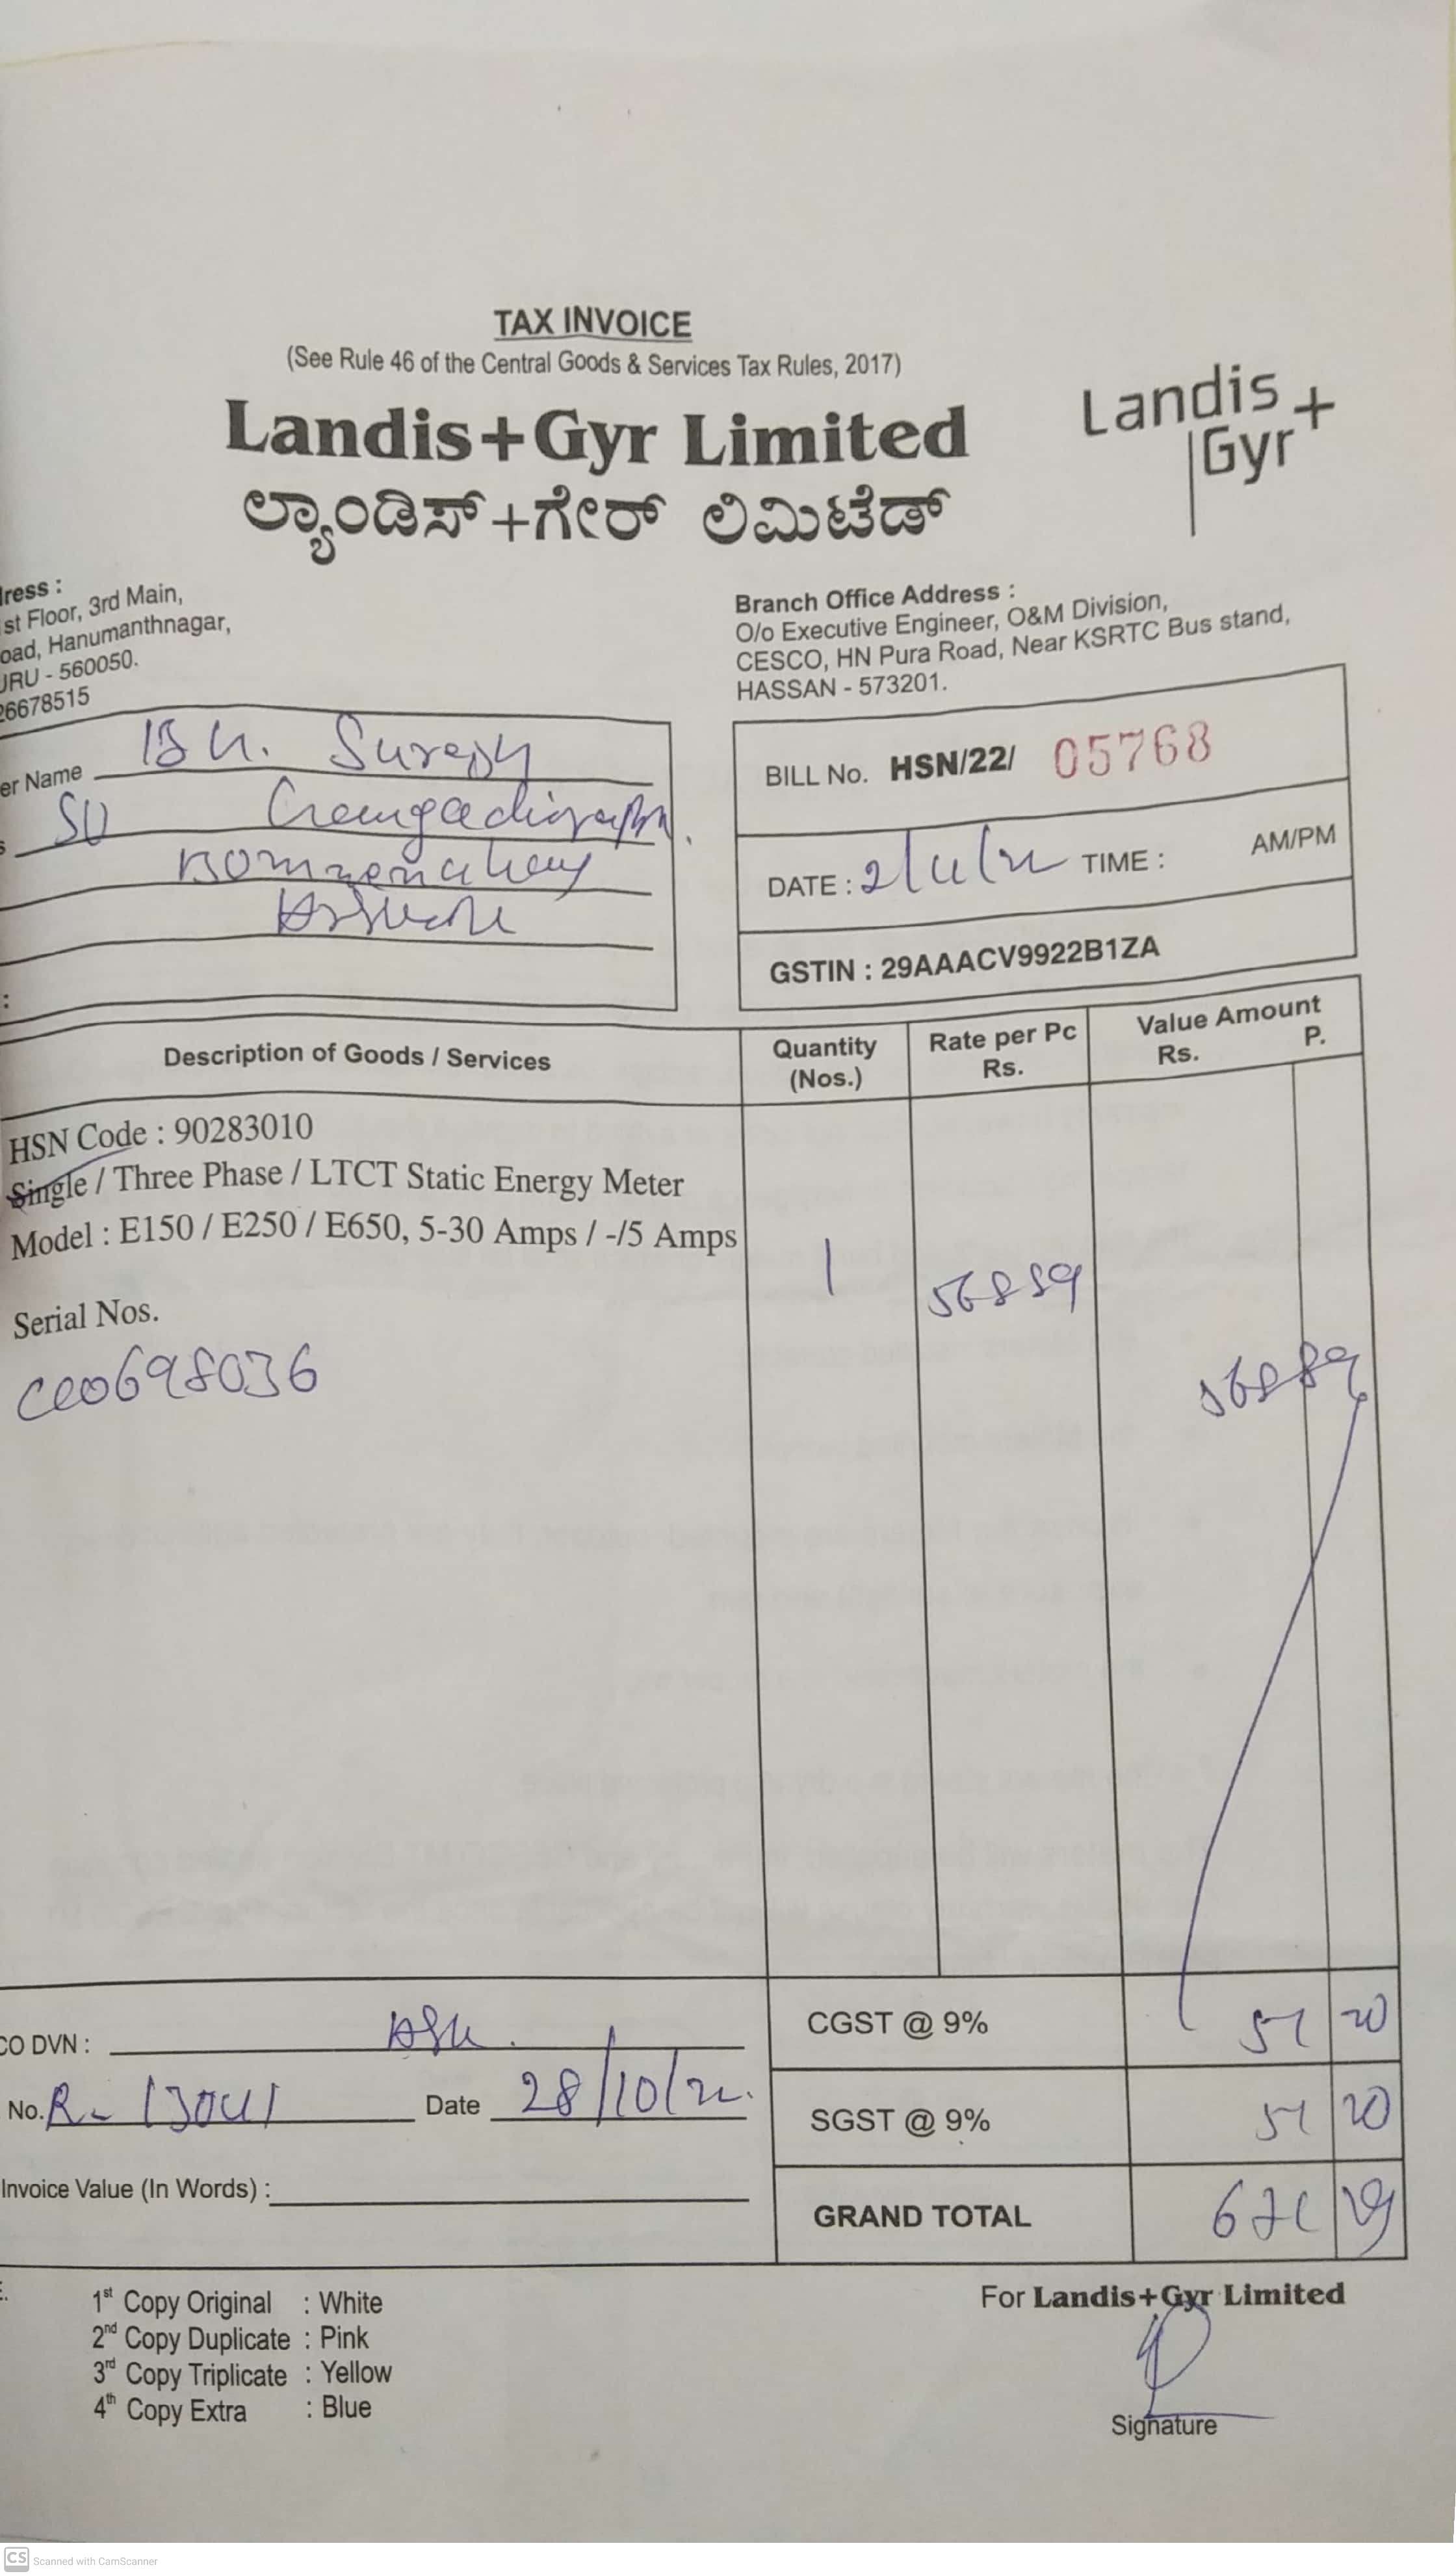 TAX INVOICE
(See Rule 46 of the Central Goods & Services Tax Rules, 2017)
Landis+Gyr Limited
ಲ್ಯಾಂಡಿಸ್+ಗೇರ್ ಲಿಮಿಟೆಡ್
Landis+
Gyr
ress :
st Floor, 3rd Main,
oad, Hanumanthnagar,
URU - 560050.
26678515
Branch Office Address :
O/o Executive Engineer, O&M Division,
CESCO, HN Pura Road, Near KSRTC Bus stand,
HASSAN - 573201.
er Name Suresh
BILL No. HSN/22/ 05768
DATE : TIME : AM/PM
GSTIN : 29AAACV9922B1ZA
Description of Goods / Services
Quantity (Nos.)
Rate per Pc Rs.
Value Amount Rs. P.
HSN Code : 90283010
Single / Three Phase / LTCT Static Energy Meter
Model : E150 / E250 / E650, 5-30 Amps / -/5 Amps
1
56889
Serial Nos.
56889
CO DVN :
CGST @ 9% 20
No. Date 28/10/22.
SGST @ 9% 20
Invoice Value (In Words) :
GRAND TOTAL
1st Copy Original : White
2nd Copy Duplicate : Pink
3rd Copy Triplicate : Yellow
4th Copy Extra : Blue
For Landis+Gyr Limited
Signature
CS Scanned with CamScanner